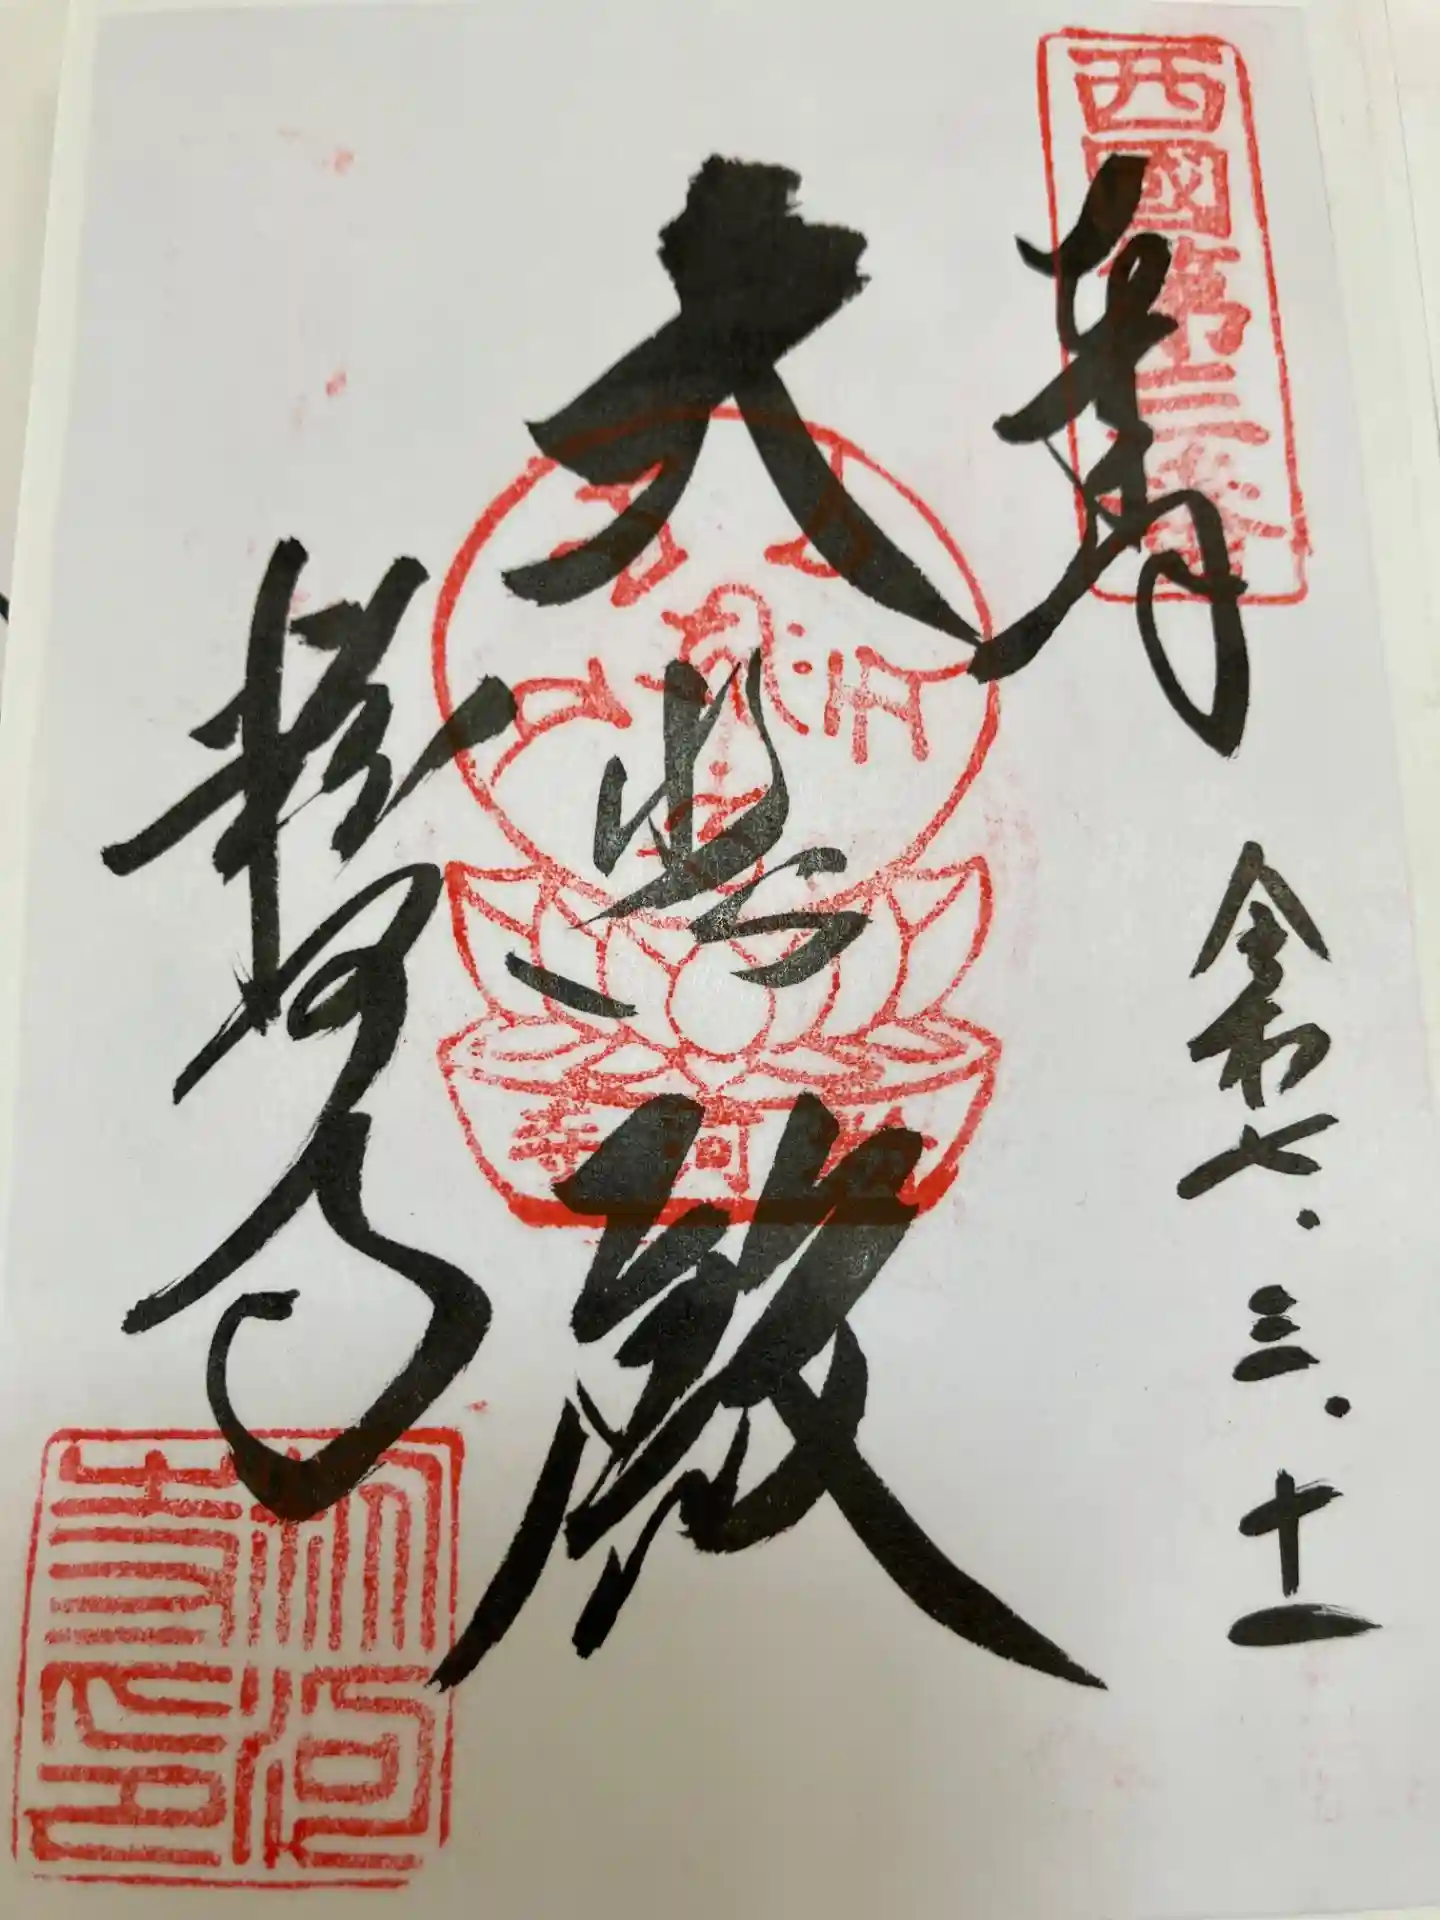 西國第三番
奉
令和七.三.十一
大悲殿
粉河寺
粉河寺
粉河寺印